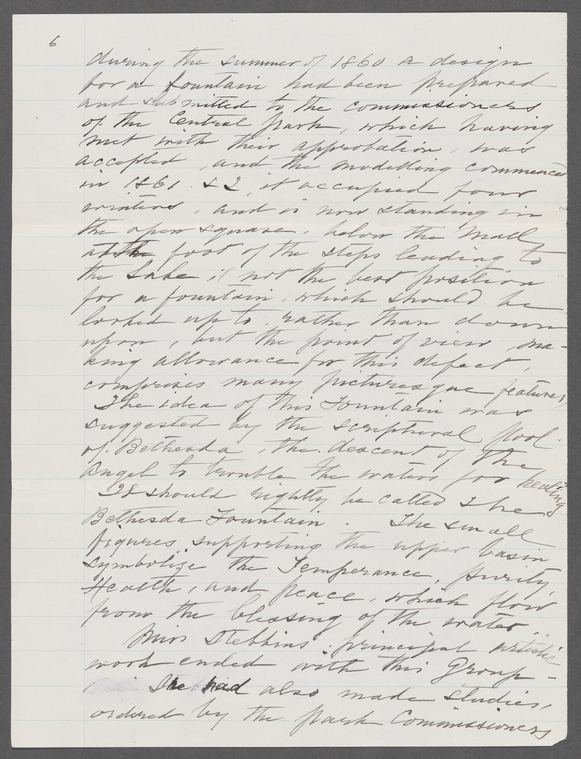 6
during the summer of 1860 a design
for a fountain had been prepared
and submitted to the commissioners
of the Central Park, which having
met with their approbation, was
accepted, and the modelling commenced
in 1861. &2, it occupied four
winters, and is now standing in
the open square, below the Mall
at the foot of the steps leading to
the Lake; (not the best position
for a fountain, which should be
looked up to rather than down
upon, but the point of view, ma-
king allowance for this defect,
comprises many picturesque features,
The idea of this Fountain was
suggested by the scriptural pool
of Bethesda, the descent of the
Angel to trouble the waters for healing
It should rightly be called The
Bethesda Fountain. The small
figures supporting the upper basin
symbolize the Temperance, purity,
Health, and peace, which flow
from the blessing of the water
Miss Stebbins principal artistic
work ended with this Group-
She had also made studies,
ordered by the park Commissioners